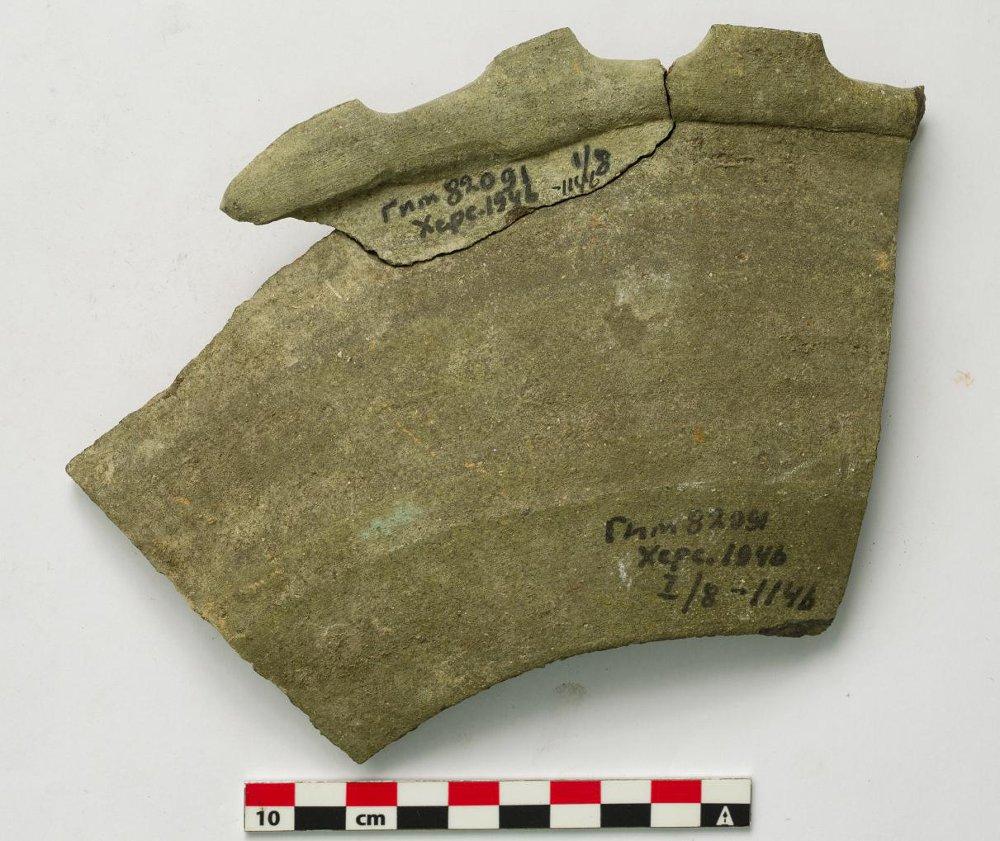 Гим 82091 1/8
Херс. 1946 -1146
Гим 82091
Херс. 1946
I/8 - 1146
10 cm
A